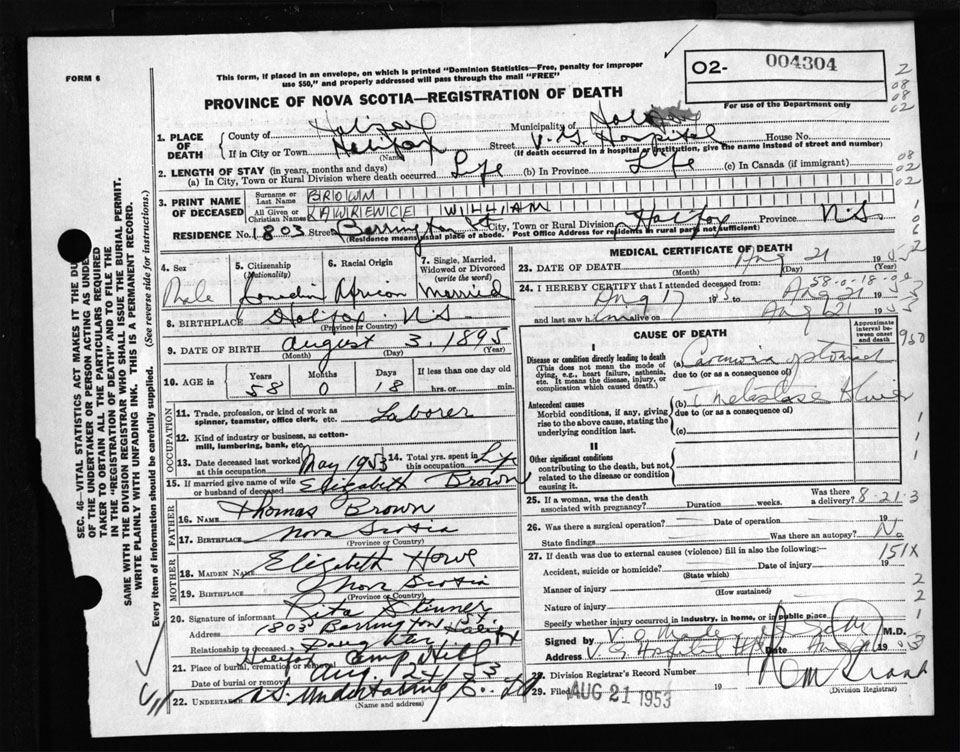 FORM 6
This form, if placed in an envelope, on which is printed "Dominion Statistics—Free, penalty for improper
use $50," and properly addressed will pass through the mail "FREE"
02- 004304
For use of the Department only
PROVINCE OF NOVA SCOTIA—REGISTRATION OF DEATH
1. PLACE OF DEATH
County of Halifax Municipality of
If in City or Town Halifax Street V. G. Hospital House No.
(Name) (If death occurred in a hospital or institution, give name instead of street and number)
2. LENGTH OF STAY (in years, months and days)
(a) In City, Town or Rural Division where death occurred Life (b) In Province Life (c) In Canada (if immigrant)
3. PRINT NAME OF DECEASED
Surname or Last Name BROWN
All Given or Christian Names LAWRENCE WILLIAM
RESIDENCE No. 1803 Street Barrington St City, Town or Rural Division Halifax Province N.S.
(Residence means usual place of abode. Post Office Address for residents in rural parts not sufficient)
4. Sex Male
5. Citizenship (Nationality) Canadian
6. Racial Origin African
7. Single, Married, Widowed or Divorced (write the word) Married
8. BIRTHPLACE Halifax N.S.
(Province or Country)
9. DATE OF BIRTH August 3, 1895
(Month) (Day) (Year)
10. AGE in Years 58 Months 0 Days 18 If less than one day old hrs. or min.
OCCUPATION
11. Trade, profession, or kind of work as spinner, teamster, office clerk, etc. Laborer
12. Kind of industry or business, as cotton-mill, lumbering, bank, etc.
13. Date deceased last worked at this occupation May 1953
14. Total yrs. spent in this occupation Life
15. If married give name of wife or husband of deceased Elizabeth Brown
FATHER
16. Name Thomas Brown
17. Birthplace Nova Scotia
(Province or Country)
MOTHER
18. Maiden Name Elizabeth Howe
19. Birthplace Nova Scotia
(Province or Country)
20. Signature of informant Rita Skinner
Address 1803 Barrington St. Halifax
Relationship to deceased Daughter
21. Place of burial, cremation or removal Halifax Camp Hill
Date of burial or removal Aug.
22. Undertaker Undertaking Co. Ltd
(Name and address)
MEDICAL CERTIFICATE OF DEATH
23. DATE OF DEATH Aug 21 19
(Month) (Day) (Year)
24. I HEREBY CERTIFY that I attended deceased from:
Aug 17 Aug 21
and last saw him alive on Aug 21
CAUSE OF DEATH
Approximate interval between onset and death
I
Disease or condition directly leading to death
(This does not mean the mode of dying, e.g., heart failure, asthenia, etc. It means the disease, injury, or complication which caused death.)
(a) Carcinoma of stomach
due to (or as a consequence of)
Antecedent causes
Morbid conditions, if any, giving rise to the above cause, stating the underlying condition last.
(b)
due to (or as a consequence of)
(c)
II
Other significant conditions
contributing to the death, but not related to the disease or condition causing it.
25. If a woman, was the death associated with pregnancy? Duration weeks. Was there a delivery?
8-21-3
26. Was there a surgical operation? Date of operation 19
State findings Was there an autopsy? No
27. If death was due to external causes (violence) fill in also the following:—
151X
Accident, suicide or homicide? Date of injury 19
(State which)
Manner of injury
(How sustained)
Nature of injury
Specify whether injury occurred in industry, in home, or in public place
Signed by M.D.
Address V. G. Hospital Date 19
28. Division Registrar's Record Number
29. Filed AUG 21 1953 19
(Division Registrar)
SEC. 46—VITAL STATISTICS ACT MAKES IT THE
OF THE UNDERTAKER OR PERSON ACTING AS
TAKER TO OBTAIN ALL THE PARTICULARS REQUIRED
IN THE "REGISTRATION OF DEATH" AND TO FILE THE
SAME WITH THE DIVISION REGISTRAR WHO SHALL ISSUE THE BURIAL PERMIT.
WRITE PLAINLY WITH UNFADING INK. THIS IS A PERMANENT RECORD.
Every item of information should be carefully supplied. (See reverse side for instructions.)